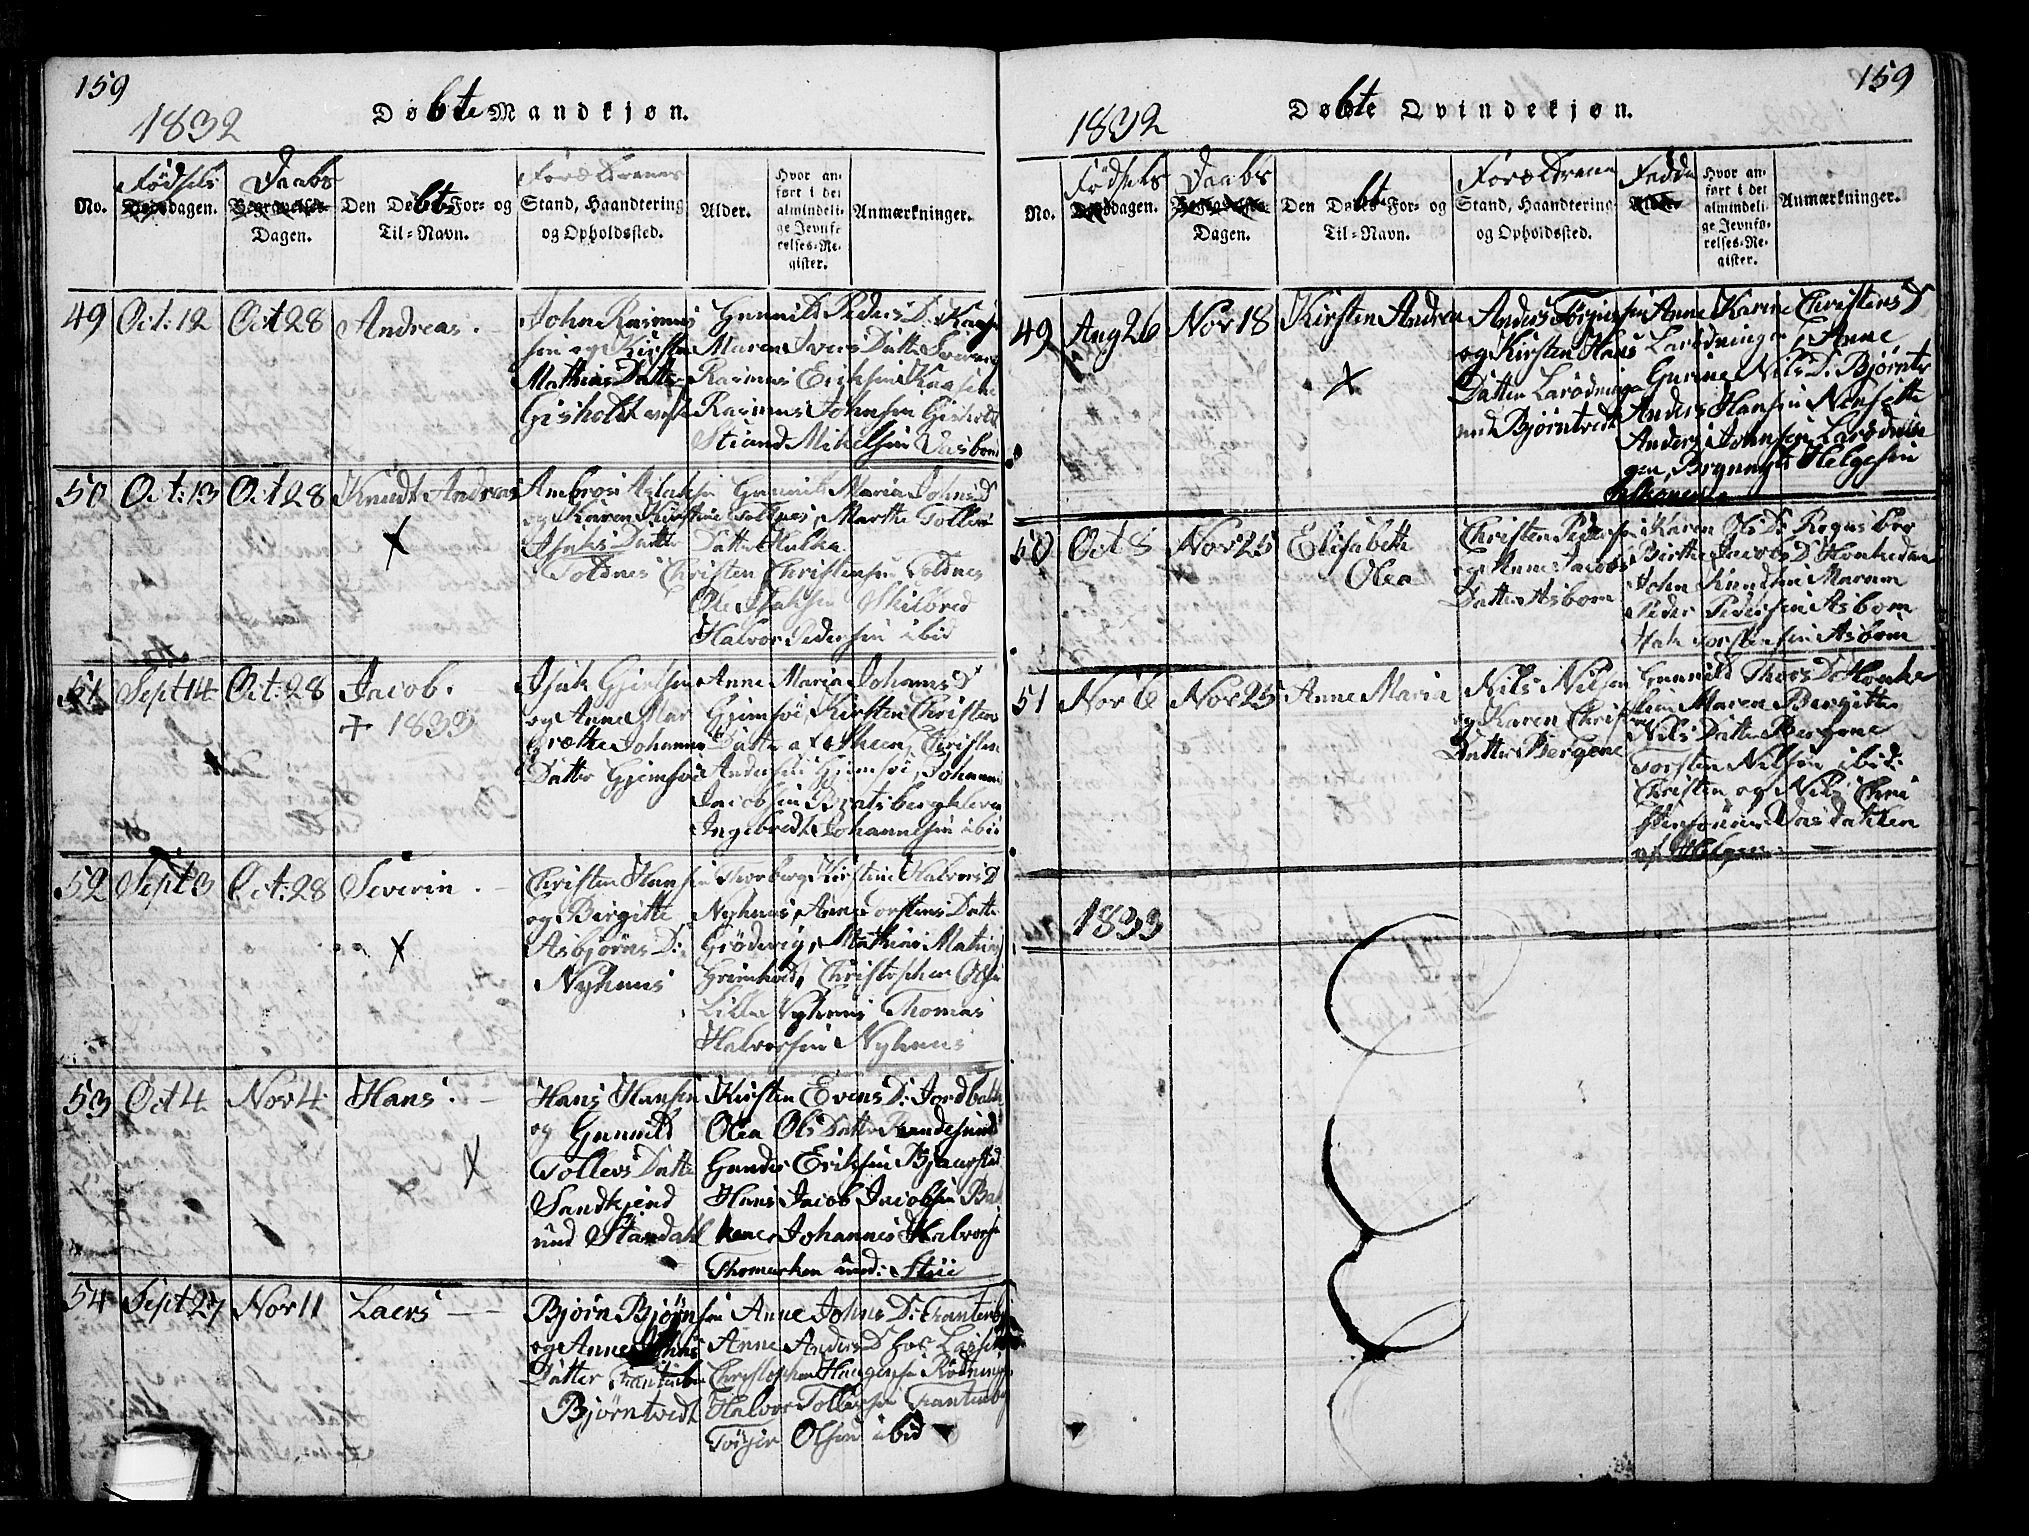 159
1832
Døbte Mandkjøn.
No.
Fødsels dagen.
Daabs Dagen.
Den Døbtes For- og Til-Navn.
Forældrenes Stand, Haandtering og Opholdssted.
Alder.
Hvor anført i det almindelige Jevnførelses-Register.
Anmærkninger.
49 Oct: 12 Oct 28 Andreas.
John Rasmus
sen og Kirsten
Mathias Datter
Gisholdt
Gunnild Peders D: Kaase
Maren Ivers Datter
Rasmus Eriksen Kaasene
Rasmus Johnsen Gisholdt
Stiand Mikelsen Aasbom
50 Oct: 13 Oct 28 Knudt Andreas
X
Ambros Aslaksen
og Karen Kirstine
Isaks Datter
Toldnes
Gunnild Maria Johns D
Toldnes, Marthe Tollevs
Datter Hulka
Christen Christensen Toldnes
Ole Isaksen Skilbred
Halvor Pedersen ibid
51 Sept 14 Oct: 28 Jacob.
+ 1833
Isak Gjertsen
og Anne Mar
Grethe Johannes
Datter Gjemsøe
Anne Maria Johannes D
Gjemsøe, Kirsten Christens
Datter af Skeen, Christen
Andersen Gjemsøe, Johannes
Jacobsen Bratsbergkleven
Ingebredt Johannesen ibid
52 Sept 3 Oct: 28 Severin.
X
Christen Hansen
og Birgitte
Asbjørns D:
Nyhuus
Thorberg Kirstine Halvors D
Nyhuus, Anne Torstens Datter
Grødvig, Mathias Mathis
Grimhold, Christopher Olsen
Lille Nyhuus, Thomas
Halvorsen Nyhuus
53 Oct 4 Nov 4 Hans.
X
Hans Hansen
og Gunnild
Tollevs Datter
Sandkjend
und Skandahl
Kirsten Evens D: Jordbakke
Olea Ols Datter Randesund
Gunder Eriksen Bjaarstad
Hans Jacob Jacobsen Bak
kene, Johannes Halvorsen
Thomasken und: Stie
54 Sept 27 Nov 11 Laers
Bjørn Bjørnsen
og Anne Johns
Datter Franteb
Bjørntvedt
Anne Johns D: Franteb
Anne Anders D
Christopher Haagensen Rødninge
Halvor Tollefsen Franteb
Torjer Olsen ibid
159
1832
Døbte Qvindekjøn.
No.
Fødsels dagen.
Daabs Dagen.
Den Døbtes For- og Til-Navn.
Forældrene Stand, Haandtering og Opholdssted.
Fadde
Hvor anført i det almindelige Jevnførelses-Register.
Anmærkninger.
49 Aug 26 Nov 18 Kirsten Andrea
X
Anders Torjusen
og Kirsten Hans
Datter Larødningen
und Bjørntvedt
Anne Karine Christens D
Larødningen, Anne
Gurine Nils D: Bjørntv
Anders Hansen Nensette
Anders Johnsen Larødnin
gen, Brynnyld Helgesen
50 Oct 8 Nov 25 Elisabeth
Olea
Christen Pedersen
og Anne Jacobs
Datter Asbom
Karen Ols D: Rognsbro
Birthe Jacobs D: Honhedan
John Knudsen Marum
Peder Pedersen Asbom
Hak Torstensen Asbom
51 Nov 6 Nov 25 Anne Maria
Nils Nilsen
og Karen Christens
Datter Bergene
Gunnild Thors D: Honhe
Maren Birgitte
Nils Datter Bergene
Torsten Nilsen ibid:
Christen og Nils Chri
stensønner Aasdahlen
af
1833